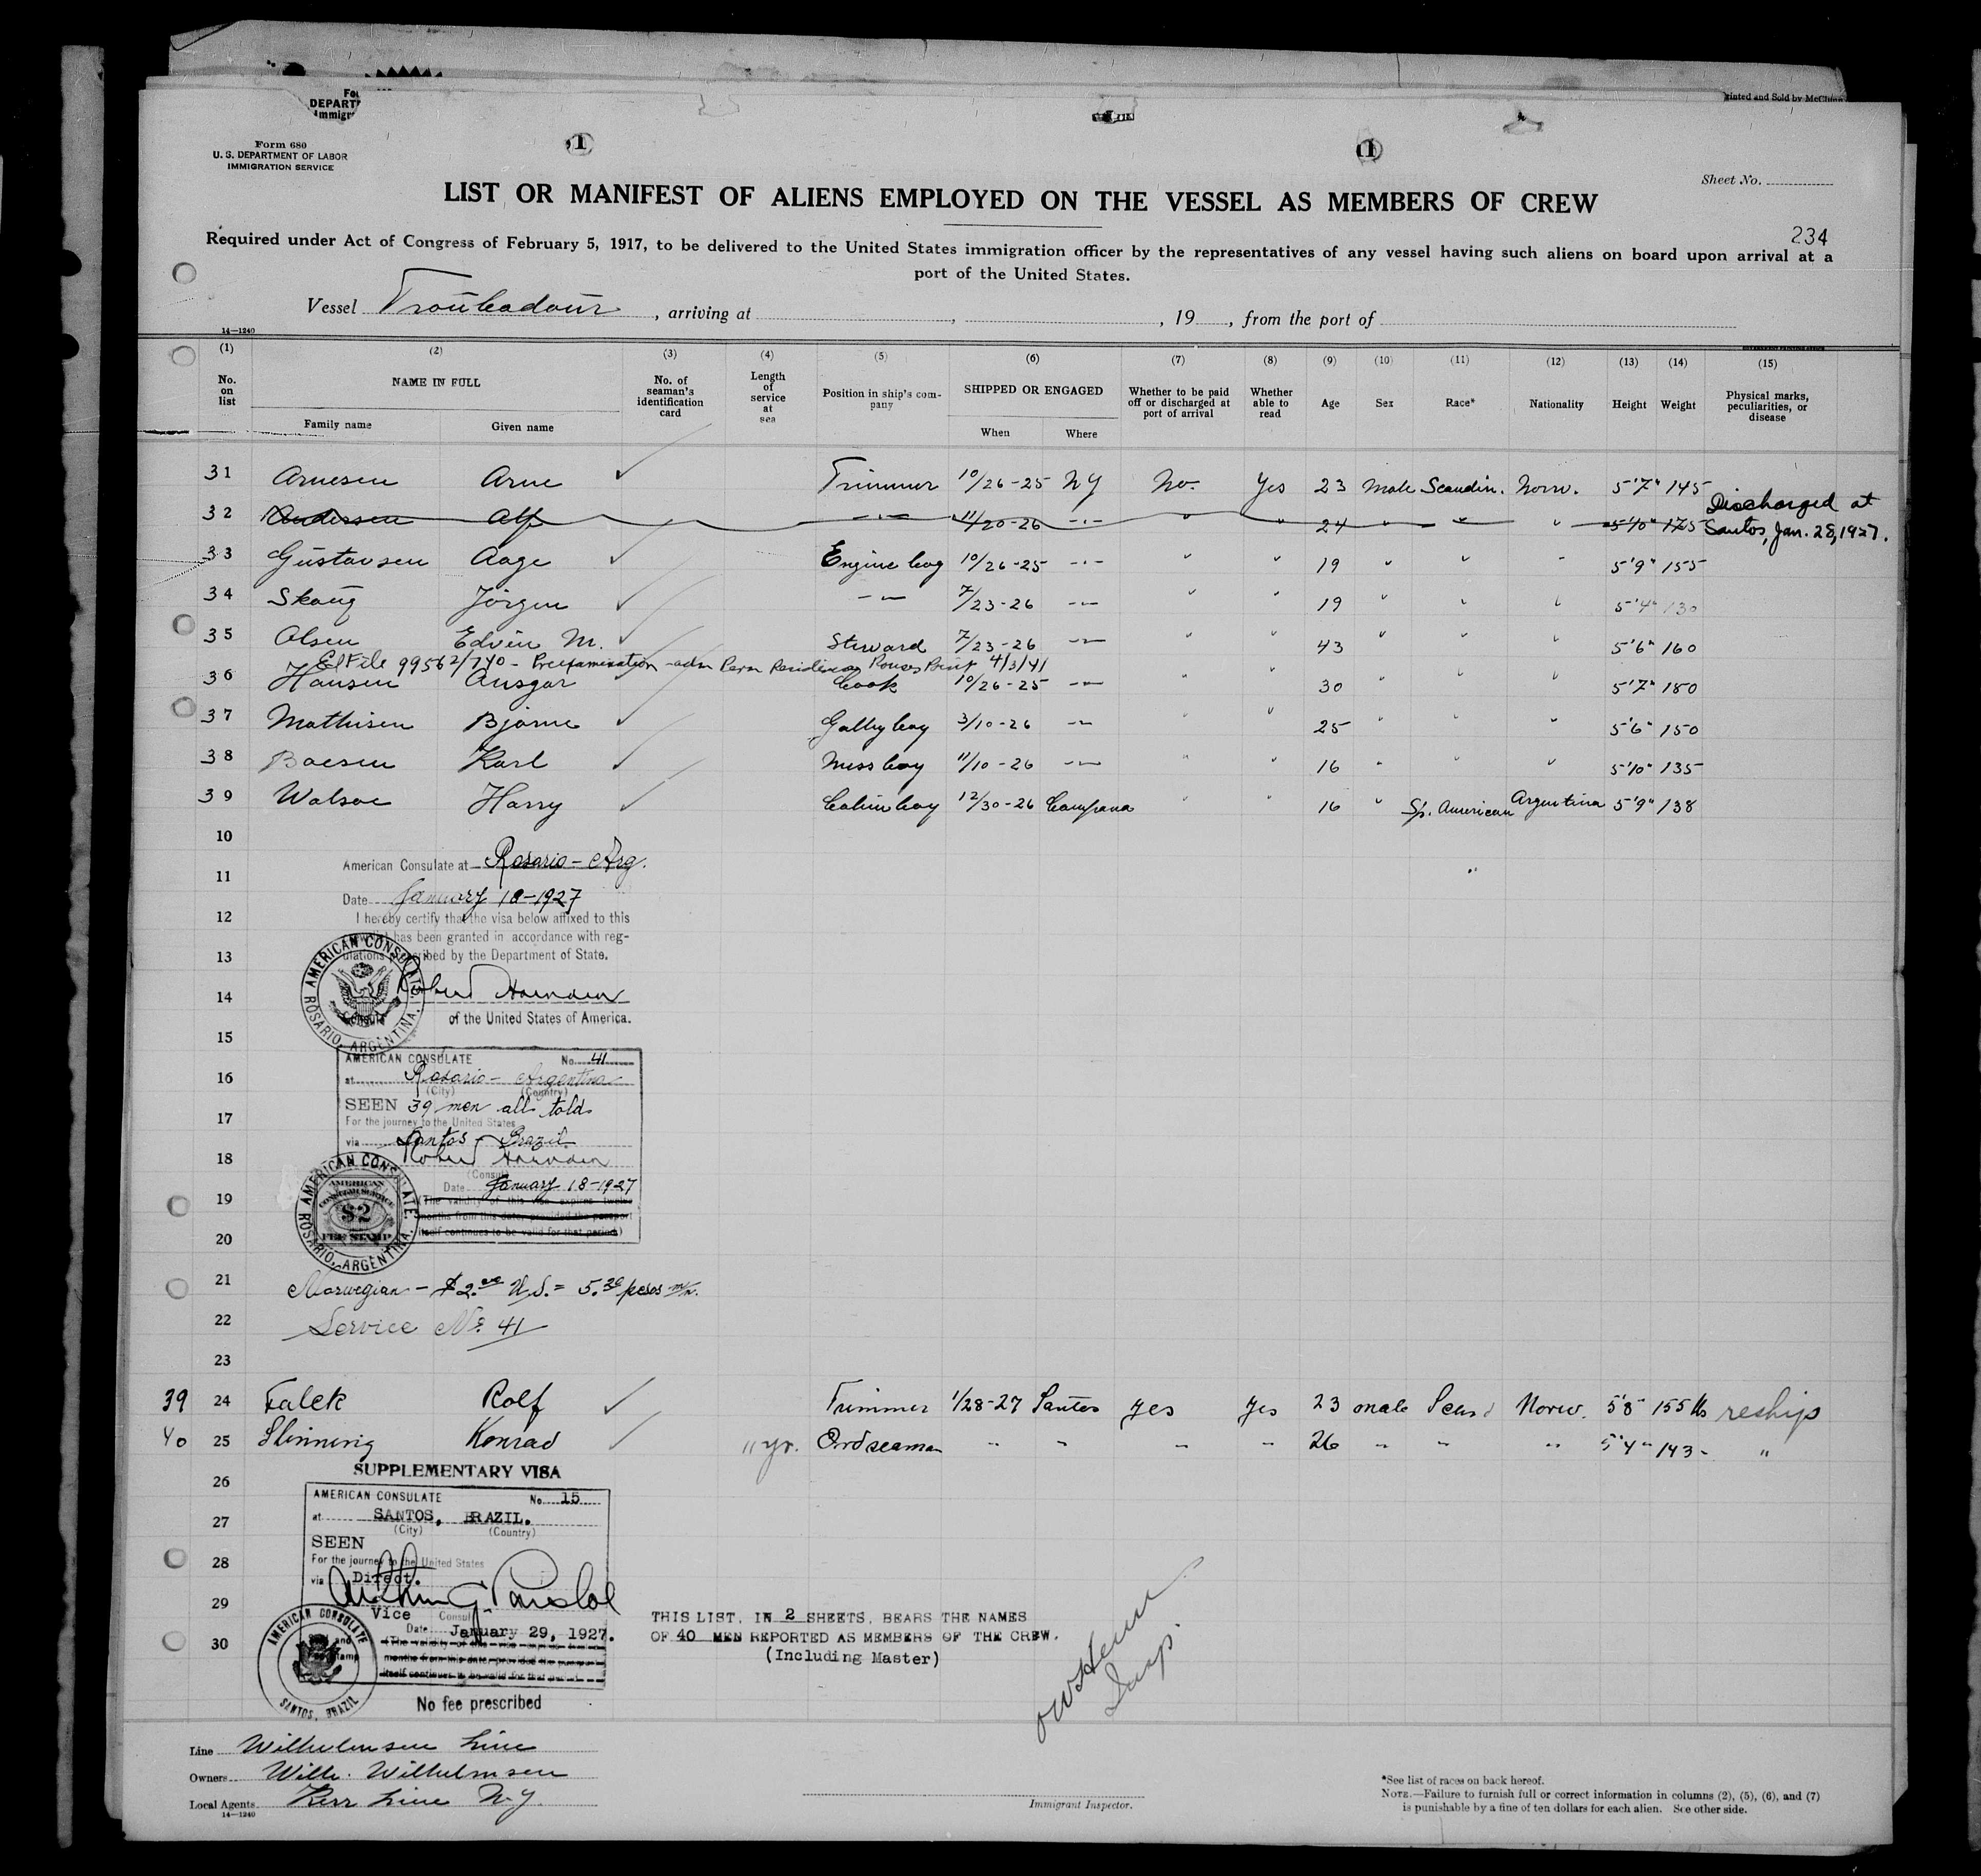 Printed and Sold by McClunn
For
DEPART
Immigr
Form 680
U. S. DEPARTMENT OF LABOR
IMMIGRATION SERVICE
1
1
Sheet No.
LIST OR MANIFEST OF ALIENS EMPLOYED ON THE VESSEL AS MEMBERS OF CREW
234
Required under Act of Congress of February 5, 1917, to be delivered to the United States immigration officer by the representatives of any vessel having such aliens on board upon arrival at a
port of the United States.
Vessel Troubadour, arriving at , , 19 , from the port of
14—1240
(1) (2) (3) (4) (5) (6) (7) (8) (9) (10) (11) (12) (13) (14) (15)
No. on list NAME IN FULL No. of seaman's identification card Length of service at sea Position in ship's company SHIPPED OR ENGAGED Whether to be paid off or discharged at port of arrival Whether able to read Age Sex Race* Nationality Height Weight Physical marks, peculiarities, or disease
Family name Given name When Where
31 Arnesen Arne Trimmer 10/26-25 NY No. Yes 23 Male Scandin. Norw. 5'7" 145
32 Anderssen Alf -"- 11/20-26 -"- " " 24 " " " 5'10" 175 Discharged at Santos, Jan. 28, 1927.
33 Gustavsen Aage Engine boy 10/26-25 -"- " " 19 " " " 5'9" 155
34 Skaug Jörgen -"- 7/23-26 -"- " " 19 " " " 5'4" 130
35 Olsen Edvin M. Steward 7/23-26 -"- " " 43 " " " 5'6" 160
EI File 99562/740 - Preexamination - adm Perm Residence Rouses Point 4/3/41
36 Hansen Ansgar Cook 10/26-25 -"- " " 30 " " " 5'7" 180
37 Mathisen Bjarne Galley boy 3/10-26 -"- " " 25 " " " 5'6" 150
38 Boesen Karl Mess boy 11/10-26 -"- " " 16 " " " 5'10" 135
39 Walsoe Harry Cabin boy 12/30-26 Campana " " 16 " Sp. American Argentina 5'9" 138
10
American Consulate at Rosario - Arg.
11
Date January 18-1927
12 I hereby certify that the visa below affixed to this
crew list has been granted in accordance with reg-
13 ulations prescribed by the Department of State.
14 Robert Harnden
Consul of the United States of America.
AMERICAN CONSULATE. ROSARIO, ARGENTINA.
15
AMERICAN CONSULATE No. 41
16 at Rosario - Argentina
(City) (Country)
SEEN 39 men all told
17 For the journey to the United States
via Santos - Brazil
18 Robert Harnden
(Consul)
Date January 18-1927
19 (The validity of this visa expires twelve
months from this date, provided the passport
20 itself continues to be valid for that period)
AMERICAN CONSULATE. ROSARIO, ARGENTINA.
AMERICAN CONSULAR SERVICE $2 FEE STAMP
21 Norwegian - $2.00 U.S. = 5.30 pesos m/n.
22 Service No. 41
23
39 24 Falck Rolf Trimmer 1/28-27 Santos yes yes 23 male Scand Norw. 5'8" 155 lbs reships
40 25 Konrad 11 yr. Ord seaman " " " " 26 " " " 5'4" 143 - "
SUPPLEMENTARY VISA
26
AMERICAN CONSULATE No. 15
27 at SANTOS, BRAZIL.
(City) (Country)
SEEN
28 For the journey to the United States
via Direct.
29
Vice Consul
Date January 29, 1927.
30 (The validity of this visa expires twelve
months from this date, provided the passport
itself continues to be valid for that period)
AMERICAN CONSULATE SANTOS, BRAZIL
No fee prescribed
THIS LIST, IN 2 SHEETS, BEARS THE NAMES
OF 40 MEN REPORTED AS MEMBERS OF THE CREW.
(Including Master)
Insp.
Line Wilhelmsen Line
Owners Wilh. Wilhelmsen
Local Agents Kerr Line N.Y.
14—1240
Immigrant Inspector.
*See list of races on back hereof.
NOTE.—Failure to furnish full or correct information in columns (2), (5), (6), and (7)
is punishable by a fine of ten dollars for each alien. See other side.